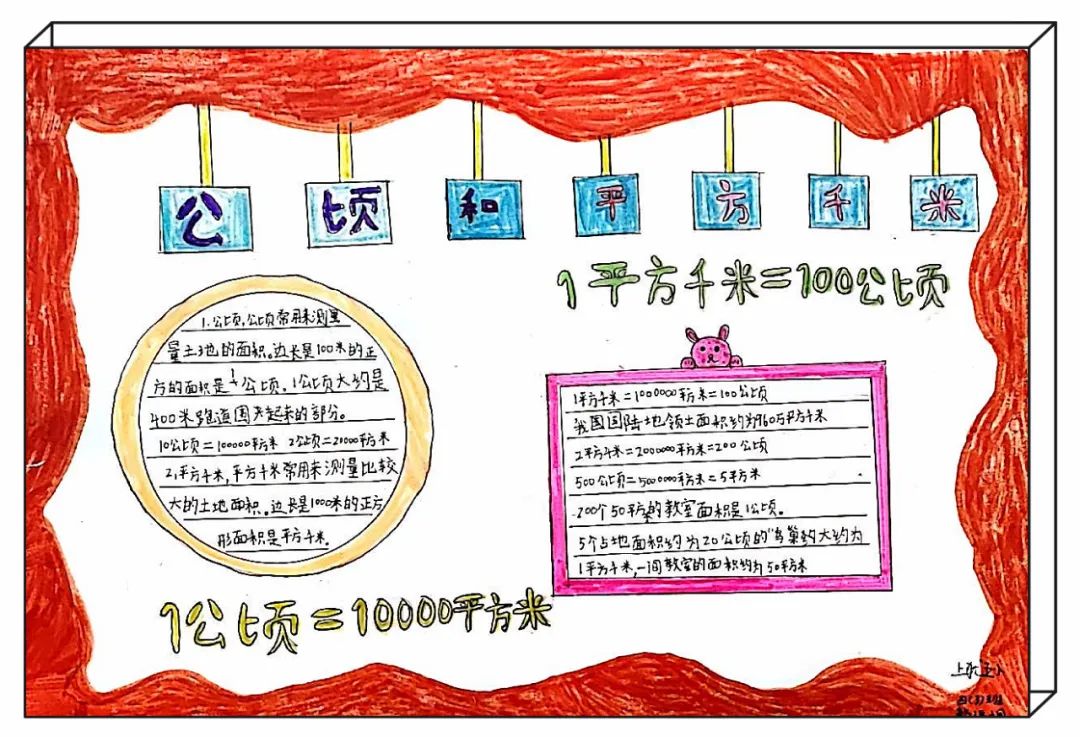 公顷和平方千米
1平方千米=100公顷
1.公顷,公顷常用来测量
量土地的面积。边长是100米的正
方的面积是1公顷,1公顷大约是
400米跑道围起来的部分。
10公顷=100000平方米 2公顷=20000平方米
2.平方千米,平方千米常用来测量比较
大的土地面积。边长是1000米的正方
形面积是平方千米。
1平方千米=1000000平方米=100公顷
我国国陆地领土面积约为960万平方千米
2平方千米=2000000平方米=200公顷
500公顷=5000000平方米=5平方米
200个50平方的教室面积是1公顷。
5个占地面积约为20公顷的"鸟巢约大约为
1平方千米,一间教室的面积约为50平方米
1公顷=10000平方米